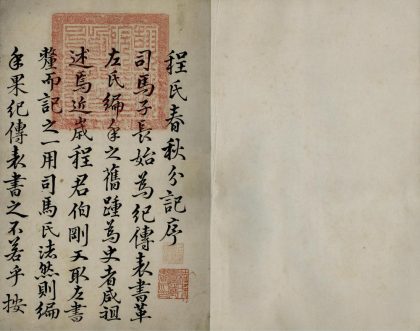 程氏春秋分記序
司馬子長始為紀傳表書革
左氏編年之舊踵為史者咸祖
述焉近歲程君伯剛又取左書
釐而記之一用司馬氏法然則編
年果紀傳表書之不若乎按